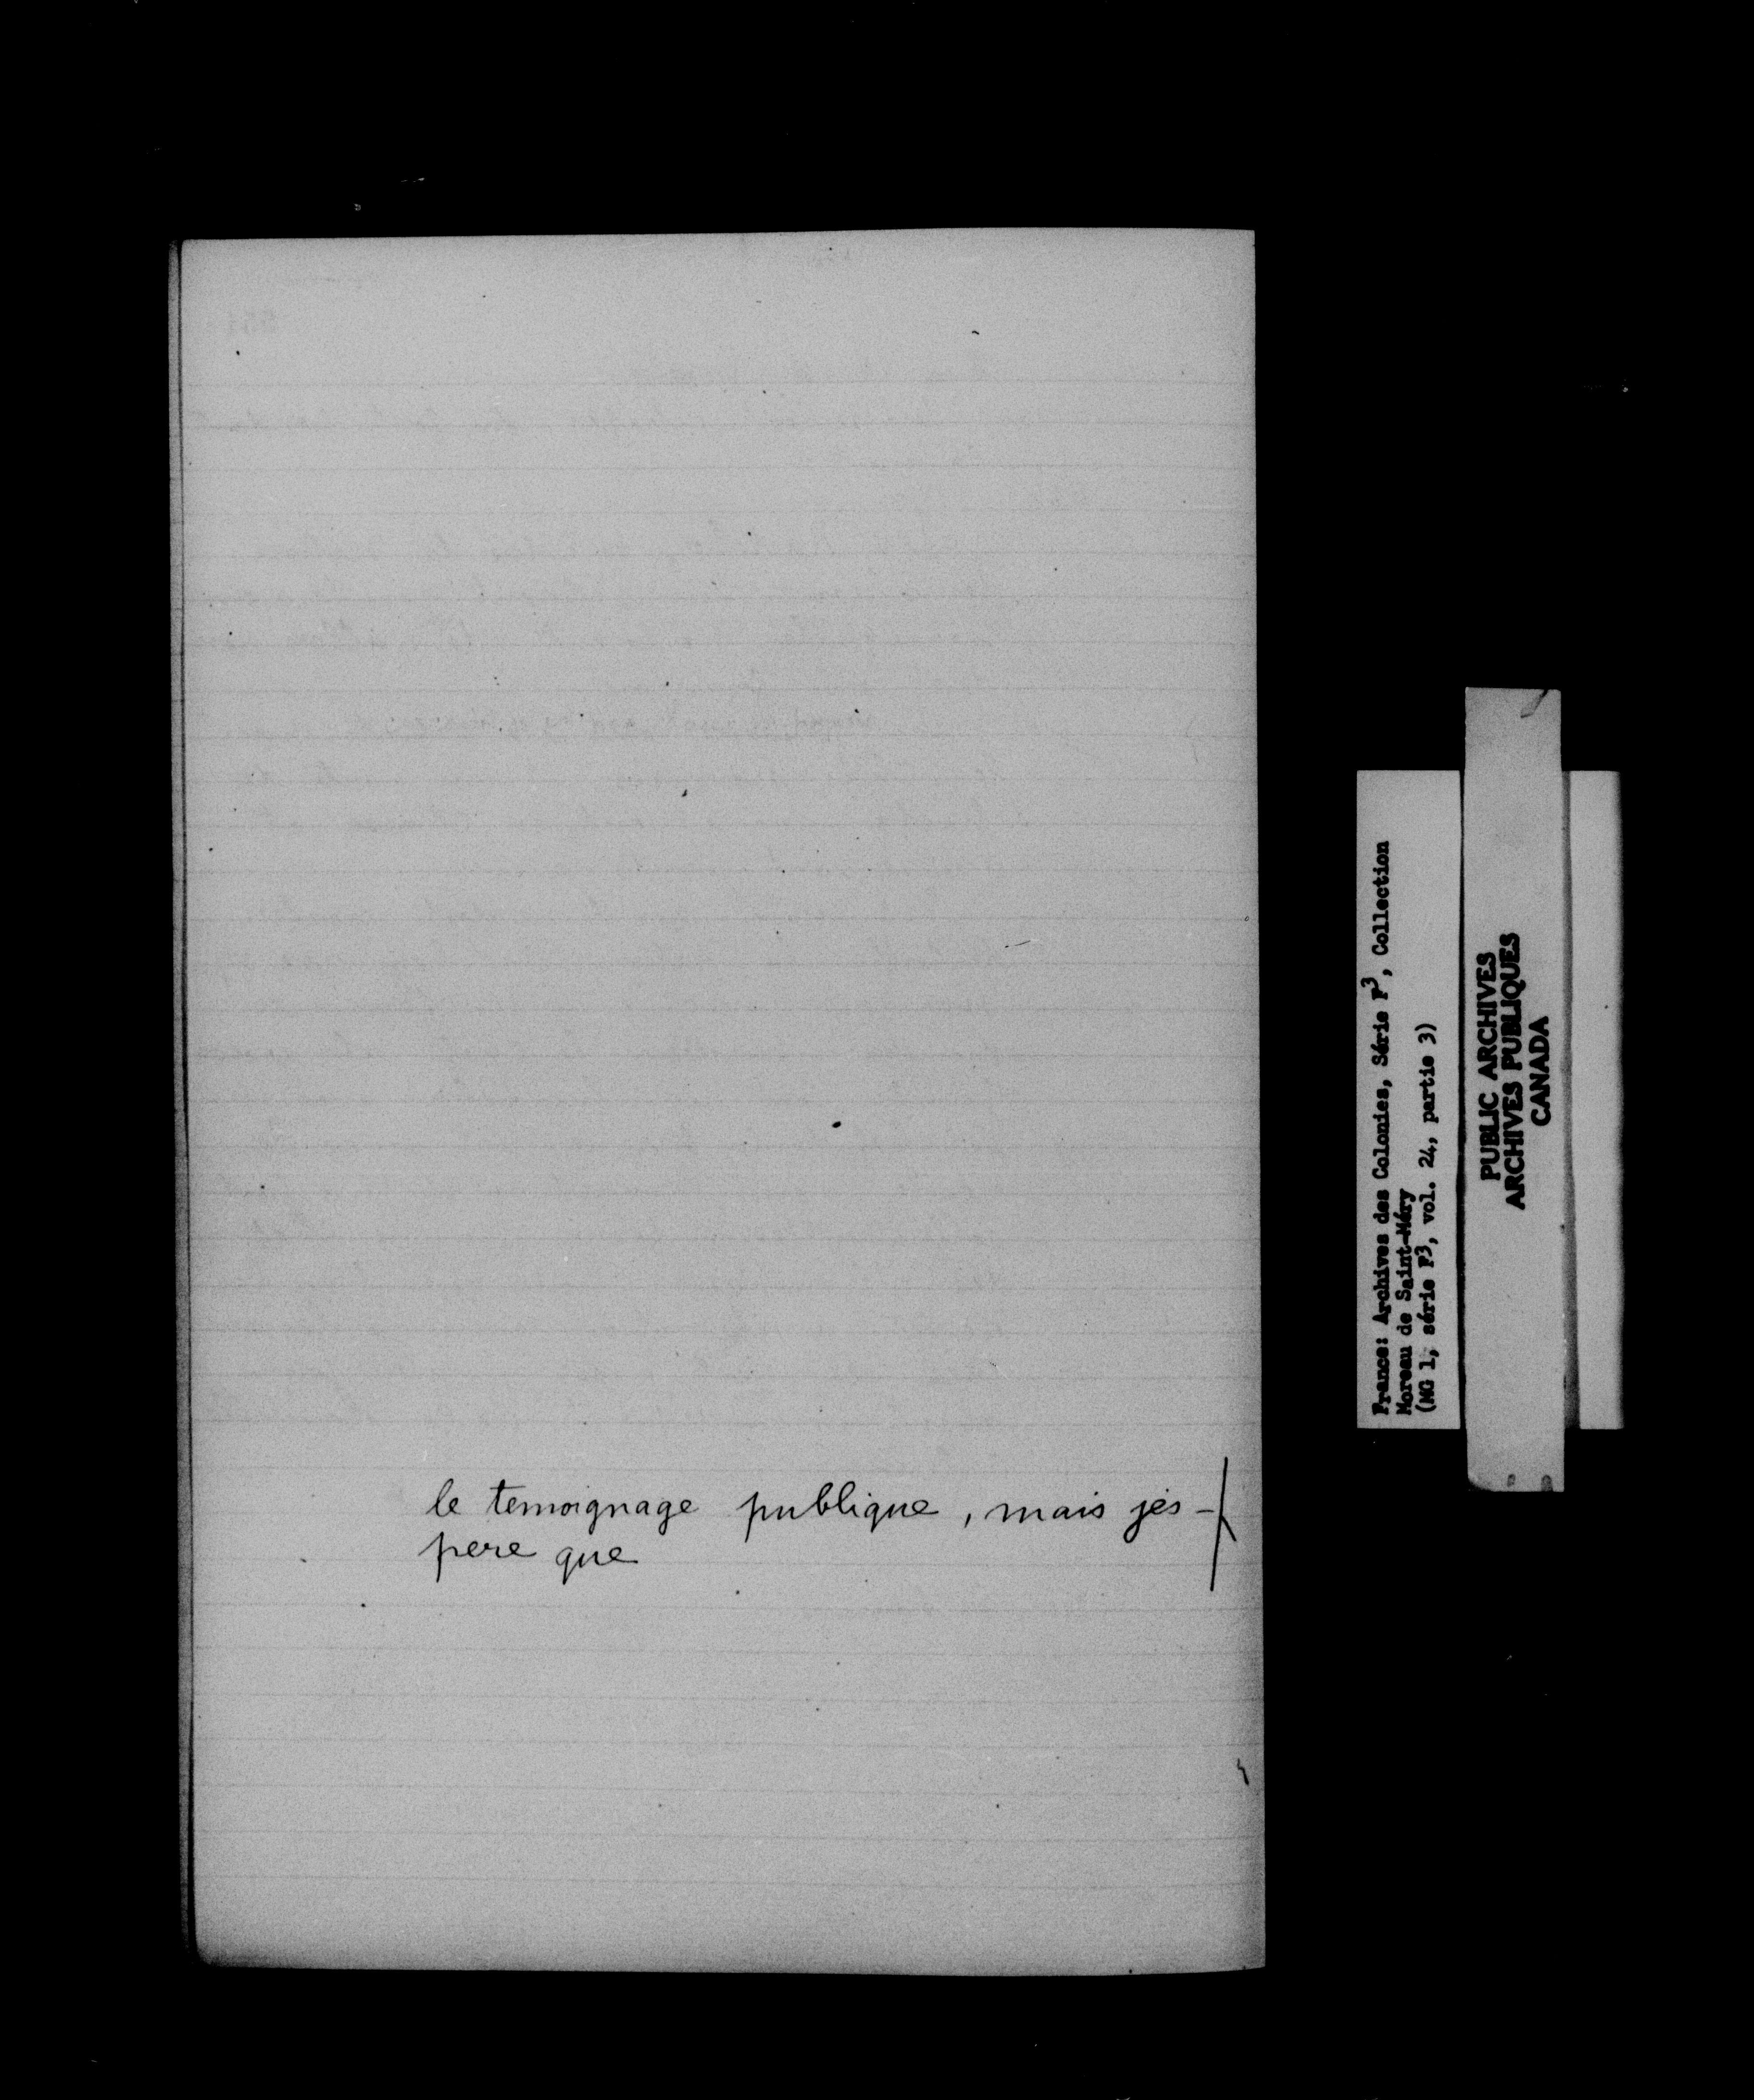 le temoignage publique, mais jes-
pere que
France: Archives des Colonies, Série F³, Collection
Moreau de Saint-Méry
(MG 1, série F³, vol. 24, partie 3)
PUBLIC ARCHIVES
ARCHIVES PUBLIQUES
CANADA